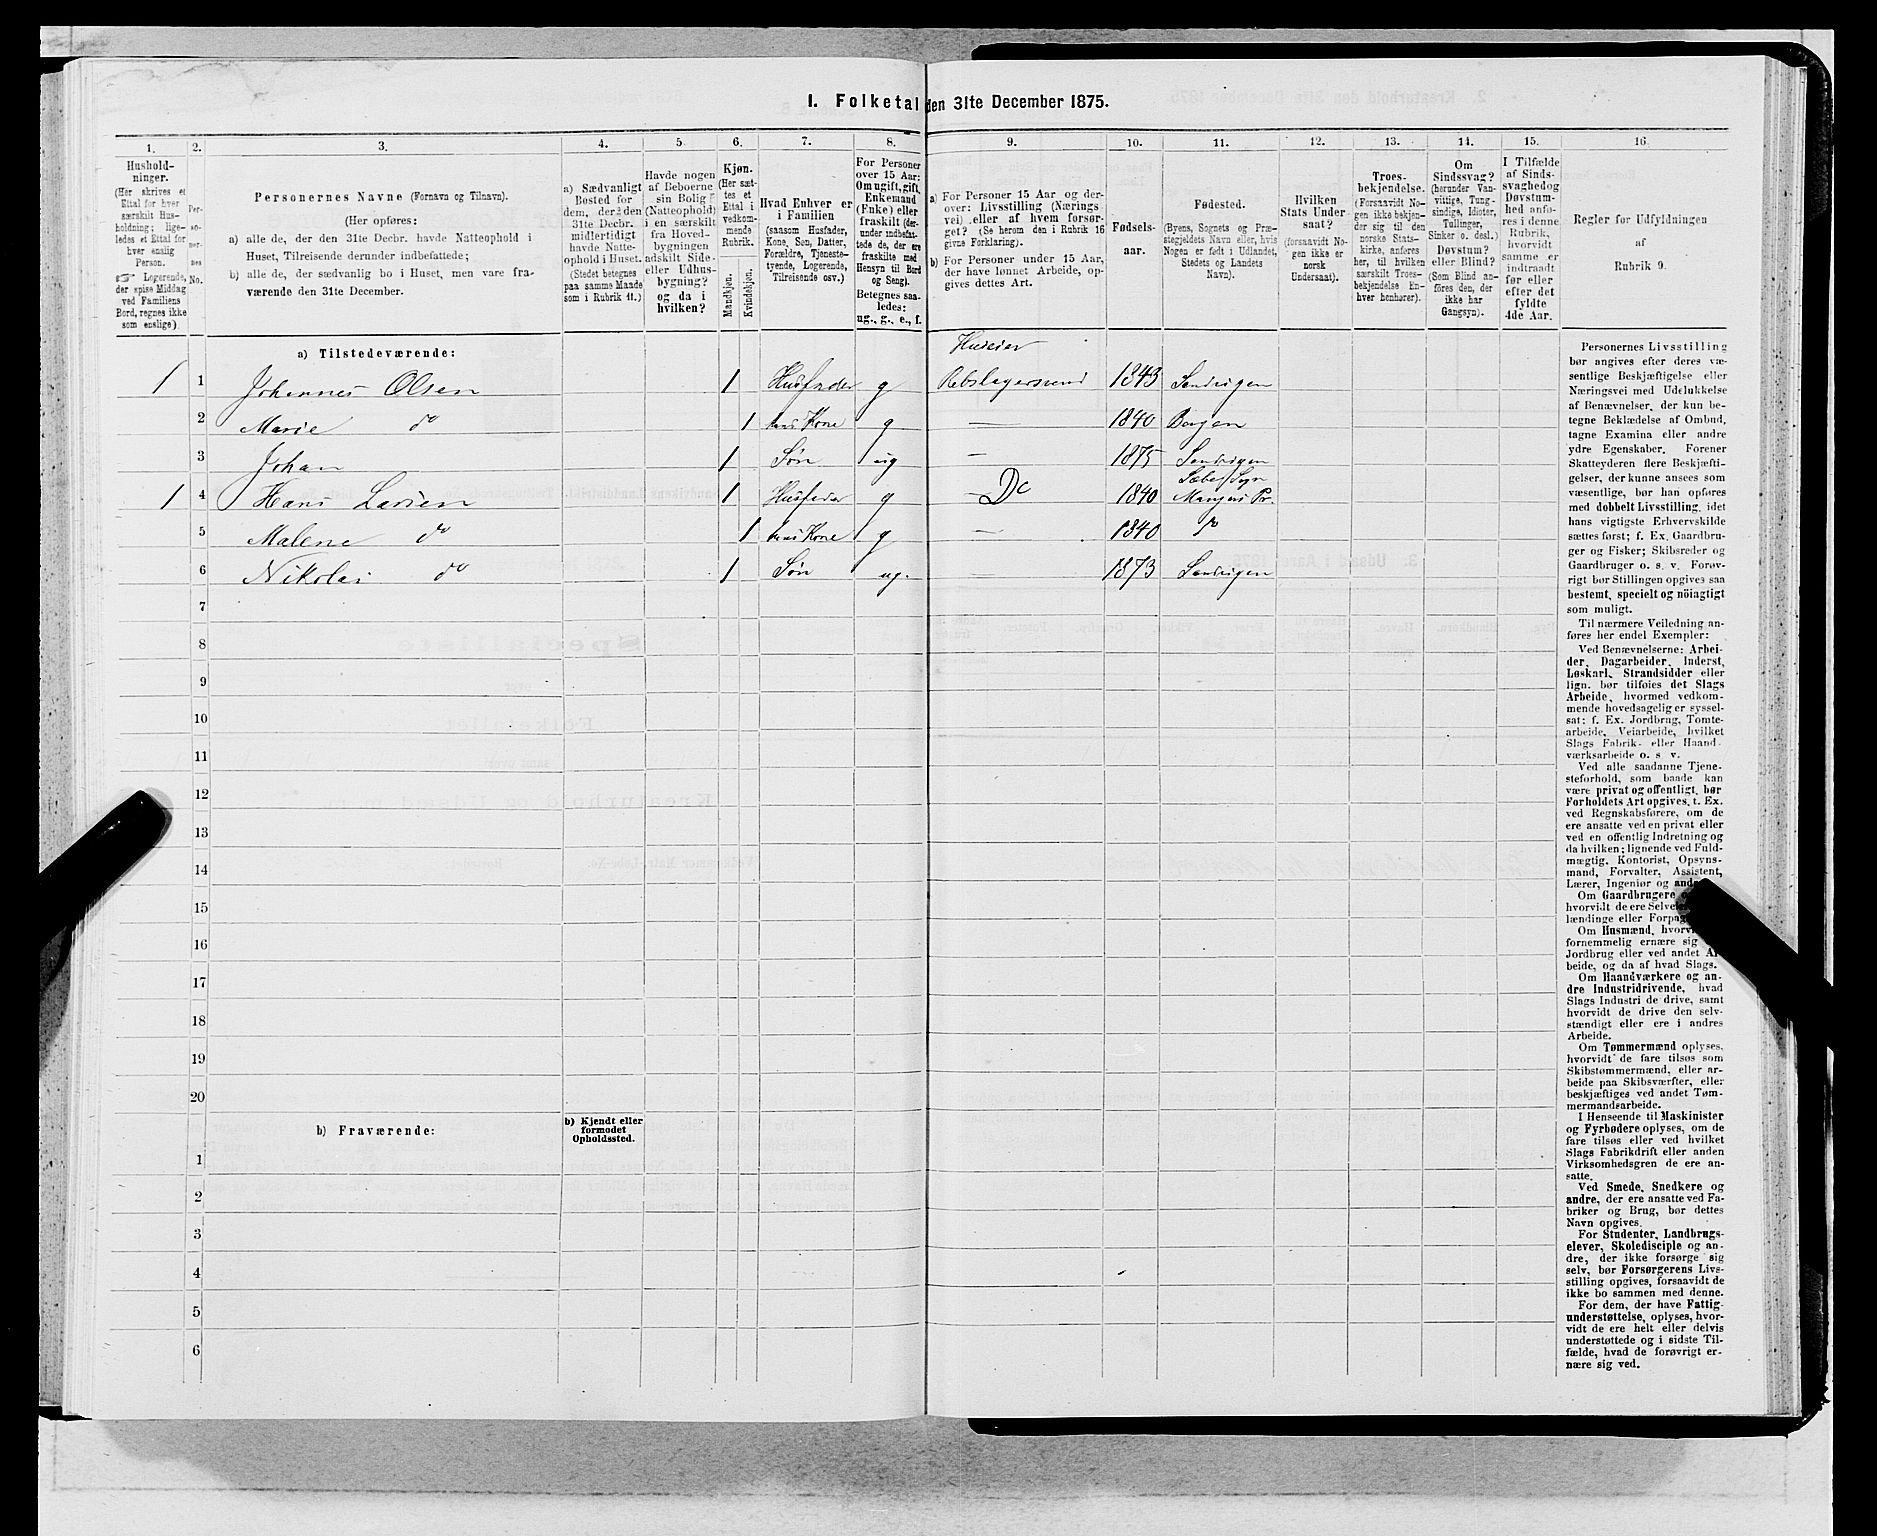 I. Folketal den 31te December 1875.
1.
Hushold-
ninger.
(Her skrives et
Ettal for hver
særskilt Hus-
holdning; lige-
ledes et Ettal for
hver enslig
Person.
☞ Logerende,
der spise Middag
ved Familiens
Bord, regnes ikke
som enslige).
2.
Per-
so-
ner-
nes
No.
3.
Personernes Navne (Fornavn og Tilnavn).
(Her opføres:
a) alle de, der den 31te Decbr. havde Natteophold i
Huset, Tilreisende derunder indbefattede;
b) alle de, der sædvanlig bo i Huset, men vare fra-
værende den 31te December.
4.
a) Sædvanligt
Bosted for
dem, der den
31te Decbr.
midlertidigt
havde Natte-
ophold i Huset.
(Stedet betegnes
paa samme Maade
som i Rubrik 11.)
5.
Havde nogen
af Beboerne
sin Bolig
(Natteophold)
i en særskilt
fra Hoved-
bygningen
adskilt Side-
eller Udhus-
bygning?
og da i
hvilken?
6.
Kjøn.
(Her sæt-
tes et
Ettal i
vedkom-
mende
Rubrik.
Mandkjøn.
Kvindekjøn.
7.
Hvad Enhver er
i Familien
(saasom Husfader,
Kone, Søn, Datter,
Forældre, Tjeneste-
tyende, Logerende,
Tilreisende osv.)
8.
For Personer
over 15 Aar:
Om ugift, gift,
Enkemand
(Enke) eller
fraskilt (der-
under indbefat-
tede de, der ere
fraskilte med
Hensyn til Bord
og Seng).
Betegnes saa-
ledes:
ug., g., e., f.
9.
a) For Personer 15 Aar og der-
over: Livsstilling (Nærings-
vei) eller af hvem forsør-
get? (Se herom den i Rubrik 16
givne Forklaring).
b) For Personer under 15 Aar,
der have lønnet Arbeide, op-
gives dettes Art.
10.
Fødsels-
aar.
11.
Fødested.
(Byens, Sognets og Præ-
stegjeldets Navn eller, hvis
Nogen er født i Udlandet,
Stedets og Landets
Navn).
12.
Hvilken
Stats Under-
saat?
(forsaavidt No-
gen ikke er
norsk
Undersaat).
13.
Troes-
bekjendelse.
(Forsaavidt No-
gen ikke bekjen-
der sig til den
norske Stats-
kirke, anføres
her, til hvilken
særskilt Troes-
bekjendelse En-
hver henhører).
14.
Om
Sindssvag?
(herunder Van-
vittige, Tung-
sindige, Idioter,
Tullinger,
Sinker o. desl.)
Døvstum?
eller Blind?
(Som Blind an-
føres den, der
ikke har
Gangsyn).
15.
I Tilfælde
af Sinds-
svaghed og
Døvstum-
hed anfø-
res i denne
Rubrik,
hvorvidt
samme er
indtraadt
før eller
efter det
fyldte
4de Aar.
16.
Regler for Udfyldningen
af
Rubrik 9.
a) Tilstedeværende:
Huseier
1 1 Johannes Olsen 1 Husfader g Rebslagersvend 1843 Sandvigen
2 Marie do 1 hans Kone g — 1840 Bergen
3 Johan 1 Søn ug — 1875 Sandvigen
Sæbø Sogn
1 4 Hans Larsen 1 Husfader g — Do 1840 Mangers Pr.
5 Malene do 1 hans Kone g — 1840 do
6 Nikolai do 1 Søn ug. — 1873 Sandvigen
7
8
9
10
11
12
13
14
15
16
17
18
19
20
b) Fraværende:
b) Kjendt eller
formodet
Opholdssted.
1
2
3
4
5
6
Personernes Livsstilling
bør angives efter deres væ-
sentlige Beskjæftigelse eller
Næringsvei med Udelukkelse
af Benævnelser, der kun be-
tegne Beklædelse af Ombud,
tagne Examina eller andre
ydre Egenskaber. Forener
Skatteyderen flere Beskjæfti-
gelser, der kunne ansees som
væsentlige, bør han opføres
med dobbelt Livsstilling, idet
hans vigtigste Erhvervskilde
sættes først; f. Ex. Gaardbru-
ger og Fisker; Skibsreder og
Gaardbruger o. s. v. Forøv-
rigt bør Stillingen opgives saa
bestemt, specielt og nöiagtigt
som muligt.
Til nærmere Veiledning an-
føres her endel Exempler:
Ved Benævnelserne: Arbei-
der, Dagarbeider, Inderst,
Løskarl, Strandsidder eller
lign. bør tilføies det Slags
Arbeide, hvormed vedkom-
mende hovedsagelig er syssel-
sat; f. Ex. Jordbrug, Tomte-
arbeide, Veiarbeide, hvilket
Slags Fabrik- eller Haand-
værksarbeide o. s. v.
Ved alle saadanne Tjene-
steforhold, som baade kan
være privat og offentligt, bør
Forholdets Art opgives, t. Ex.
ved Regnskabsførere, om de
ere ansatte ved en privat eller
ved en offentlig Indretning og
da hvilken; lignende ved Fuld-
mægtig, Kontorist, Opsyns-
mand, Forvalter, Assistent,
Lærer, Ingeniør og
Om Gaardbrugere
hvorvidt de ere
lændinge eller
Om Husmænd,
fornemmelig ernære sig
Jordbrug eller ved andet Ar-
beide, og da af hvad Slags.
Om Haandværkere og an-
dre Industridrivende, hvad
Slags Industri de drive, samt
hvorvidt de drive den selv-
stændigt eller ere i andres
Arbeide.
Om Tømmermænd oplyses,
hvorvidt de fare tilsøs som
Skibstømmermænd, eller ar-
beide paa Skibsværfter, eller
beskjæftiges ved andet Tøm-
mermandsarbeide.
I Henseende til Maskinister
og Fyrbødere oplyses, om de
fare tilsøs eller ved hvilket
Slags Fabrikdrift eller anden
Virksomhedsgren de ere an-
satte.
Ved Smede, Snedkere og
andre, der ere ansatte ved Fa-
briker og Brug, bør dettes
Navn opgives.
For Studenter, Landbrugs-
elever, Skoledisciple og an-
dre, der ikke forsørge sig
selv, bør Forsørgerens Livs-
stilling opgives, forsaavidt de
ikke bo sammen med denne.
For dem, der have Fattig-
understøttelse, oplyses, hvor-
vidt de ere helt eller delvis
understøttede og i sidste Til-
fælde, hvad de forøvrigt er-
nære sig ved.